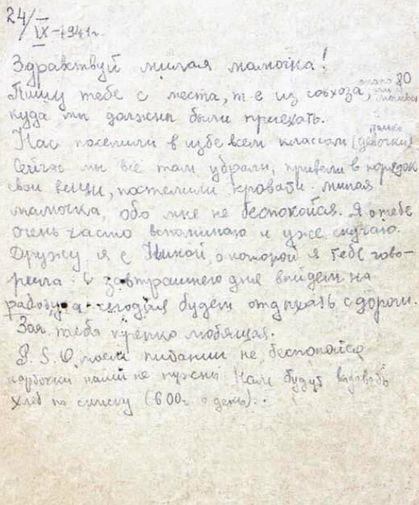 24/IX-1941г.
Здравствуй милая мамочка!
Пишу тебе с места, т.е из совхоза, около 80
куда мы должны были приехать.
Нас поселили в избе всем классом (только девочки)
Сейчас мы все там убрали, привели в порядок
свои вещи, постелили кровати. милая
мамочка, обо мне не беспокойся. Я о тебе
очень часто вспоминаю и уже скучаю.
Дружу я с Ниной, о которой я тебе гово-
рила. С завтрашнего дня выйдем на
работу, а сегодня будем отдыхать с дороги.
Зоя, тебя крепко любящая.
P.S. О моем питании не беспокойся
карточки нам не нужны. Нам будут выдавать
хлеб по списку (600г. в день).